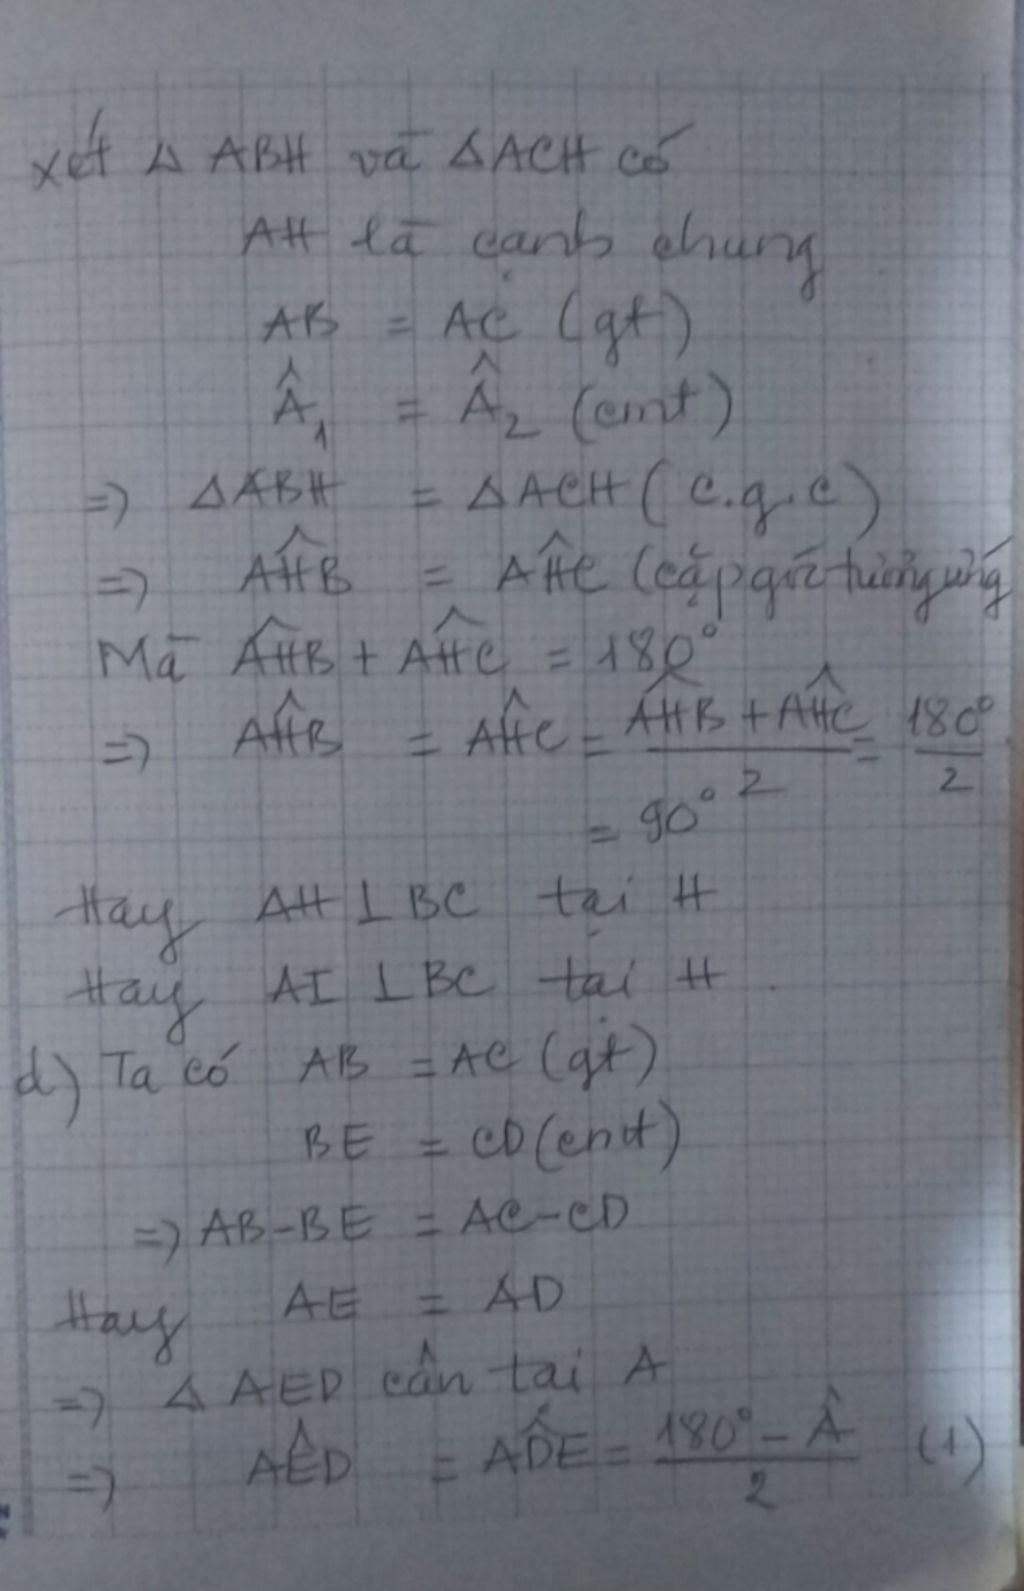 xét Δ ABH và ΔACH có
AH là cạnh chung
AB = AC (gt)
Â₁ = Â₂ (cmt)
=> ΔABH = ΔACH (c.g.c)
=> AĤB = AĤC (cặp góc tương ứng
Mà AĤB + AĤC = 180°
=> AĤB = AĤC = (AĤB + AĤC)/2 = 180°/2
= 90°
Hay AH ⊥ BC tại H
Hay AI ⊥ BC tại H.
d) Ta có AB = AC (gt)
BE = CD (cmt)
=> AB-BE = AC-CD
Hay AE = AD
=> Δ AED cân tại A
=> AÊD = AD̂E = (180° - Â)/2 (1)